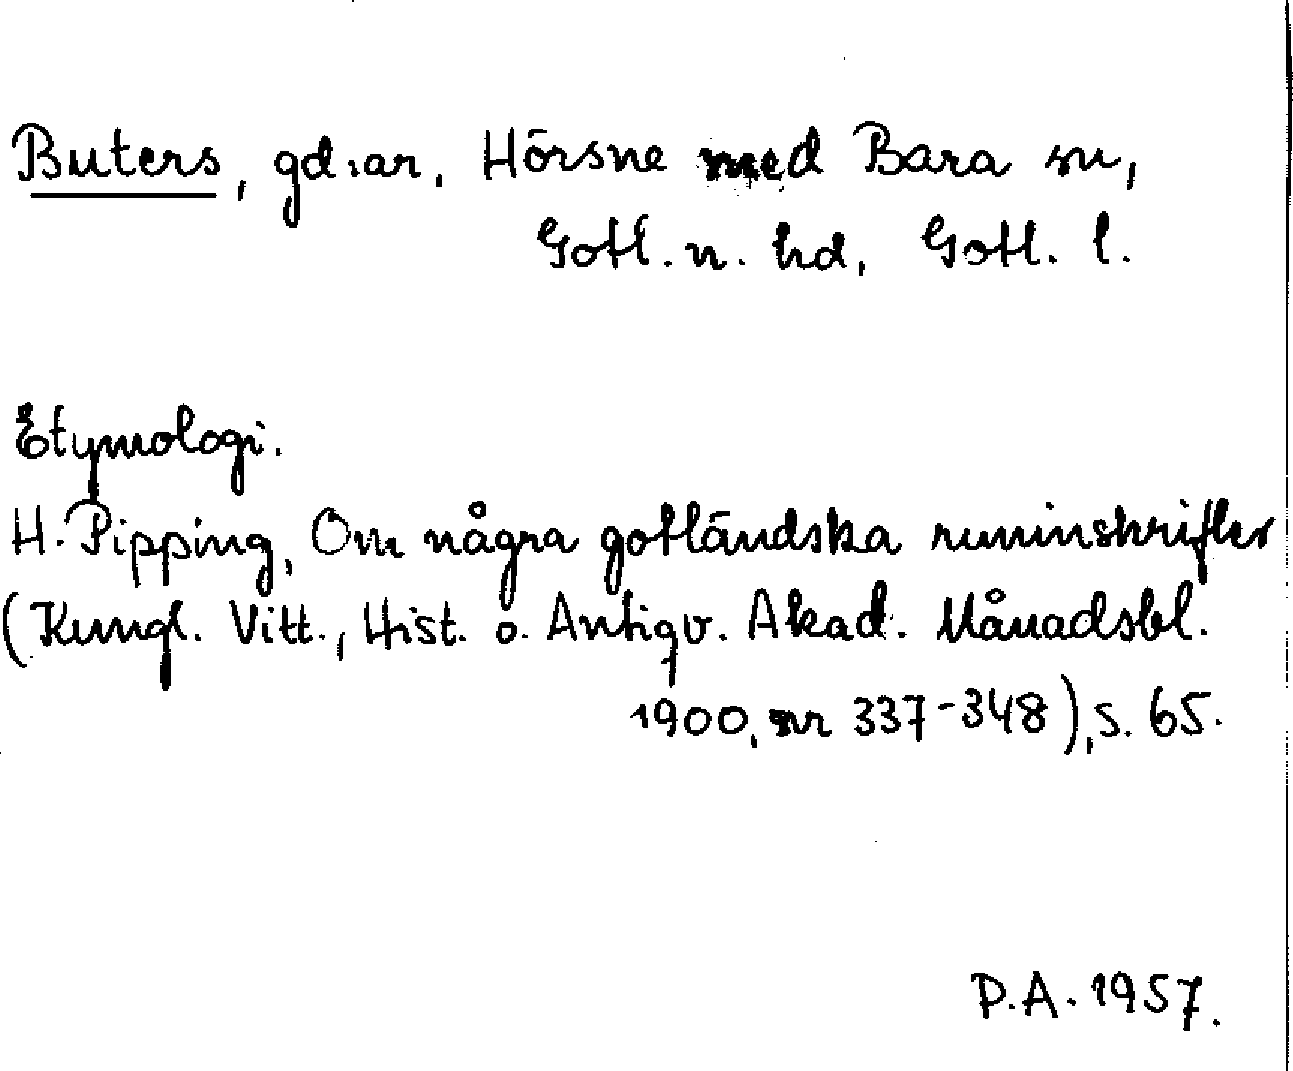 Buters, gd:ar, Hörsne med Bara sn,
Gotl. n. hd, Gotl. l.
Etymologi.
H. Pipping, Om några gotländska runinskrifter
(Kungl. Vitt., Hist. o. Antiqv. Akad. Månadsbl.
1900, nr 337-348), s. 65.
P.A. 1957.